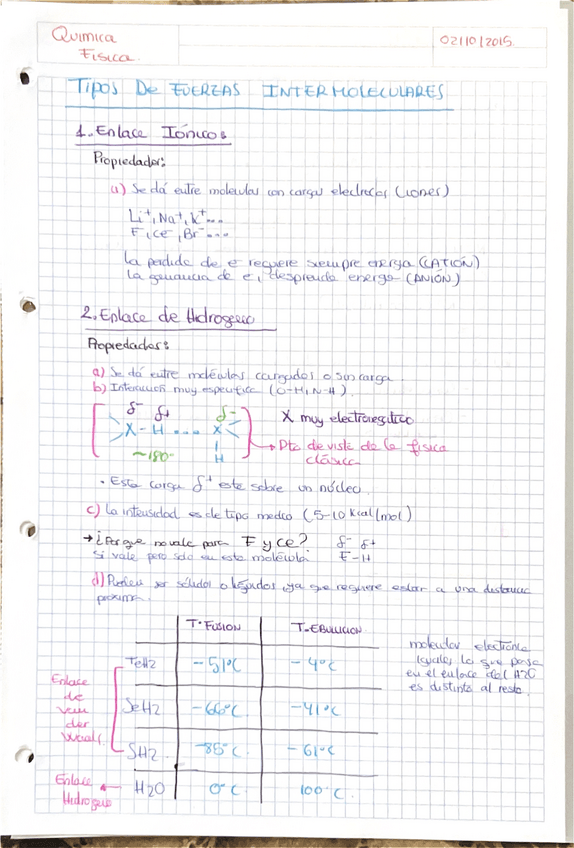 Quimica
Fisica.
02/10/2015
TIPOS DE FUERZAS INTERMOLECULARES
1. Enlace Iónico:
Propiedades:
a) Se dá entre moleculas con cargas electricas (iones)
Li+, Na+, K+...
F-, Ce-, Br-...
La perdida de e- requiere siempre energia (CATIÓN)
La ganancia de e-, desprende energia (ANIÓN)
2. Enlace de Hidrogeno
Propiedades:
a) Se dá entre moléculas cargadas o sin carga.
b) Interacción muy especifica (O-H, N-H).
δ- δ+ δ-
X-H .... X
H
~180°
X muy electronegativo
→ Pto de vista de la fisica
clásica
• Esta carga δ+ este sobre un núcleo.
c) La intensidad es de tipo medio (5-10 Kcal/mol)
→ ¿Porque no vale para F y Ce?
δ- δ+
Si vale pero solo en esta molécula
F-H
d) Pueden ser sólidos o líquidos, ya que requiere estar a una distancia
proxima.
T. FUSION T. EBULLICION
TeH2 -51°C -4°C
SeH2 -66°C. -41°C
SH2 -85°C. -61°C
H2O 0°C. 100°C.
Enlace
de
van
der
Waals.
Enlace
Hidrogeno
moleculas electronic
iguales, lo que pasa
en el enlace del H2O
es distinto al resto.